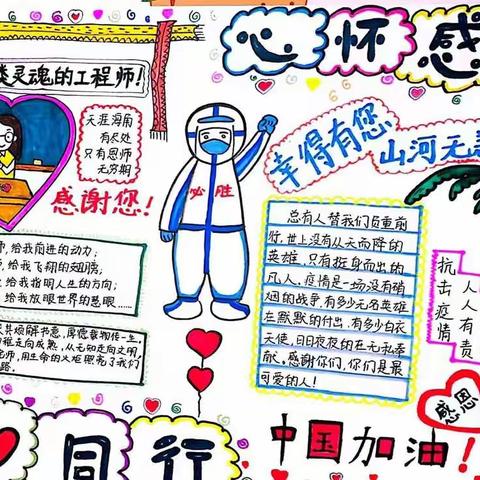 心怀感
类灵魂的工程师!
天涯海角
有尽处
只有恩师
无穷期
感谢您!
师,给我前进的动力;
,给我飞翔的翅膀;
给我指明人生的方向;
给我放眼世界的慧眼……
厚德载物传一生
走向成熟,从无知走向文明,
老师,用生命的火炬照亮了我们
路。
必胜
幸得有您
山河无恙
总有人替我们负重前
行,世上没有从天而降的
英雄,只有挺身而出的
凡人,疫情是一场没有硝
烟的战争,有多少无名英雄
在默默的付出,有多少白衣
天使,日日夜夜的在无私奉
献,感谢你们,你们是最
可爱的人!
抗击疫情
人人有责
感恩
同行
中国加油!